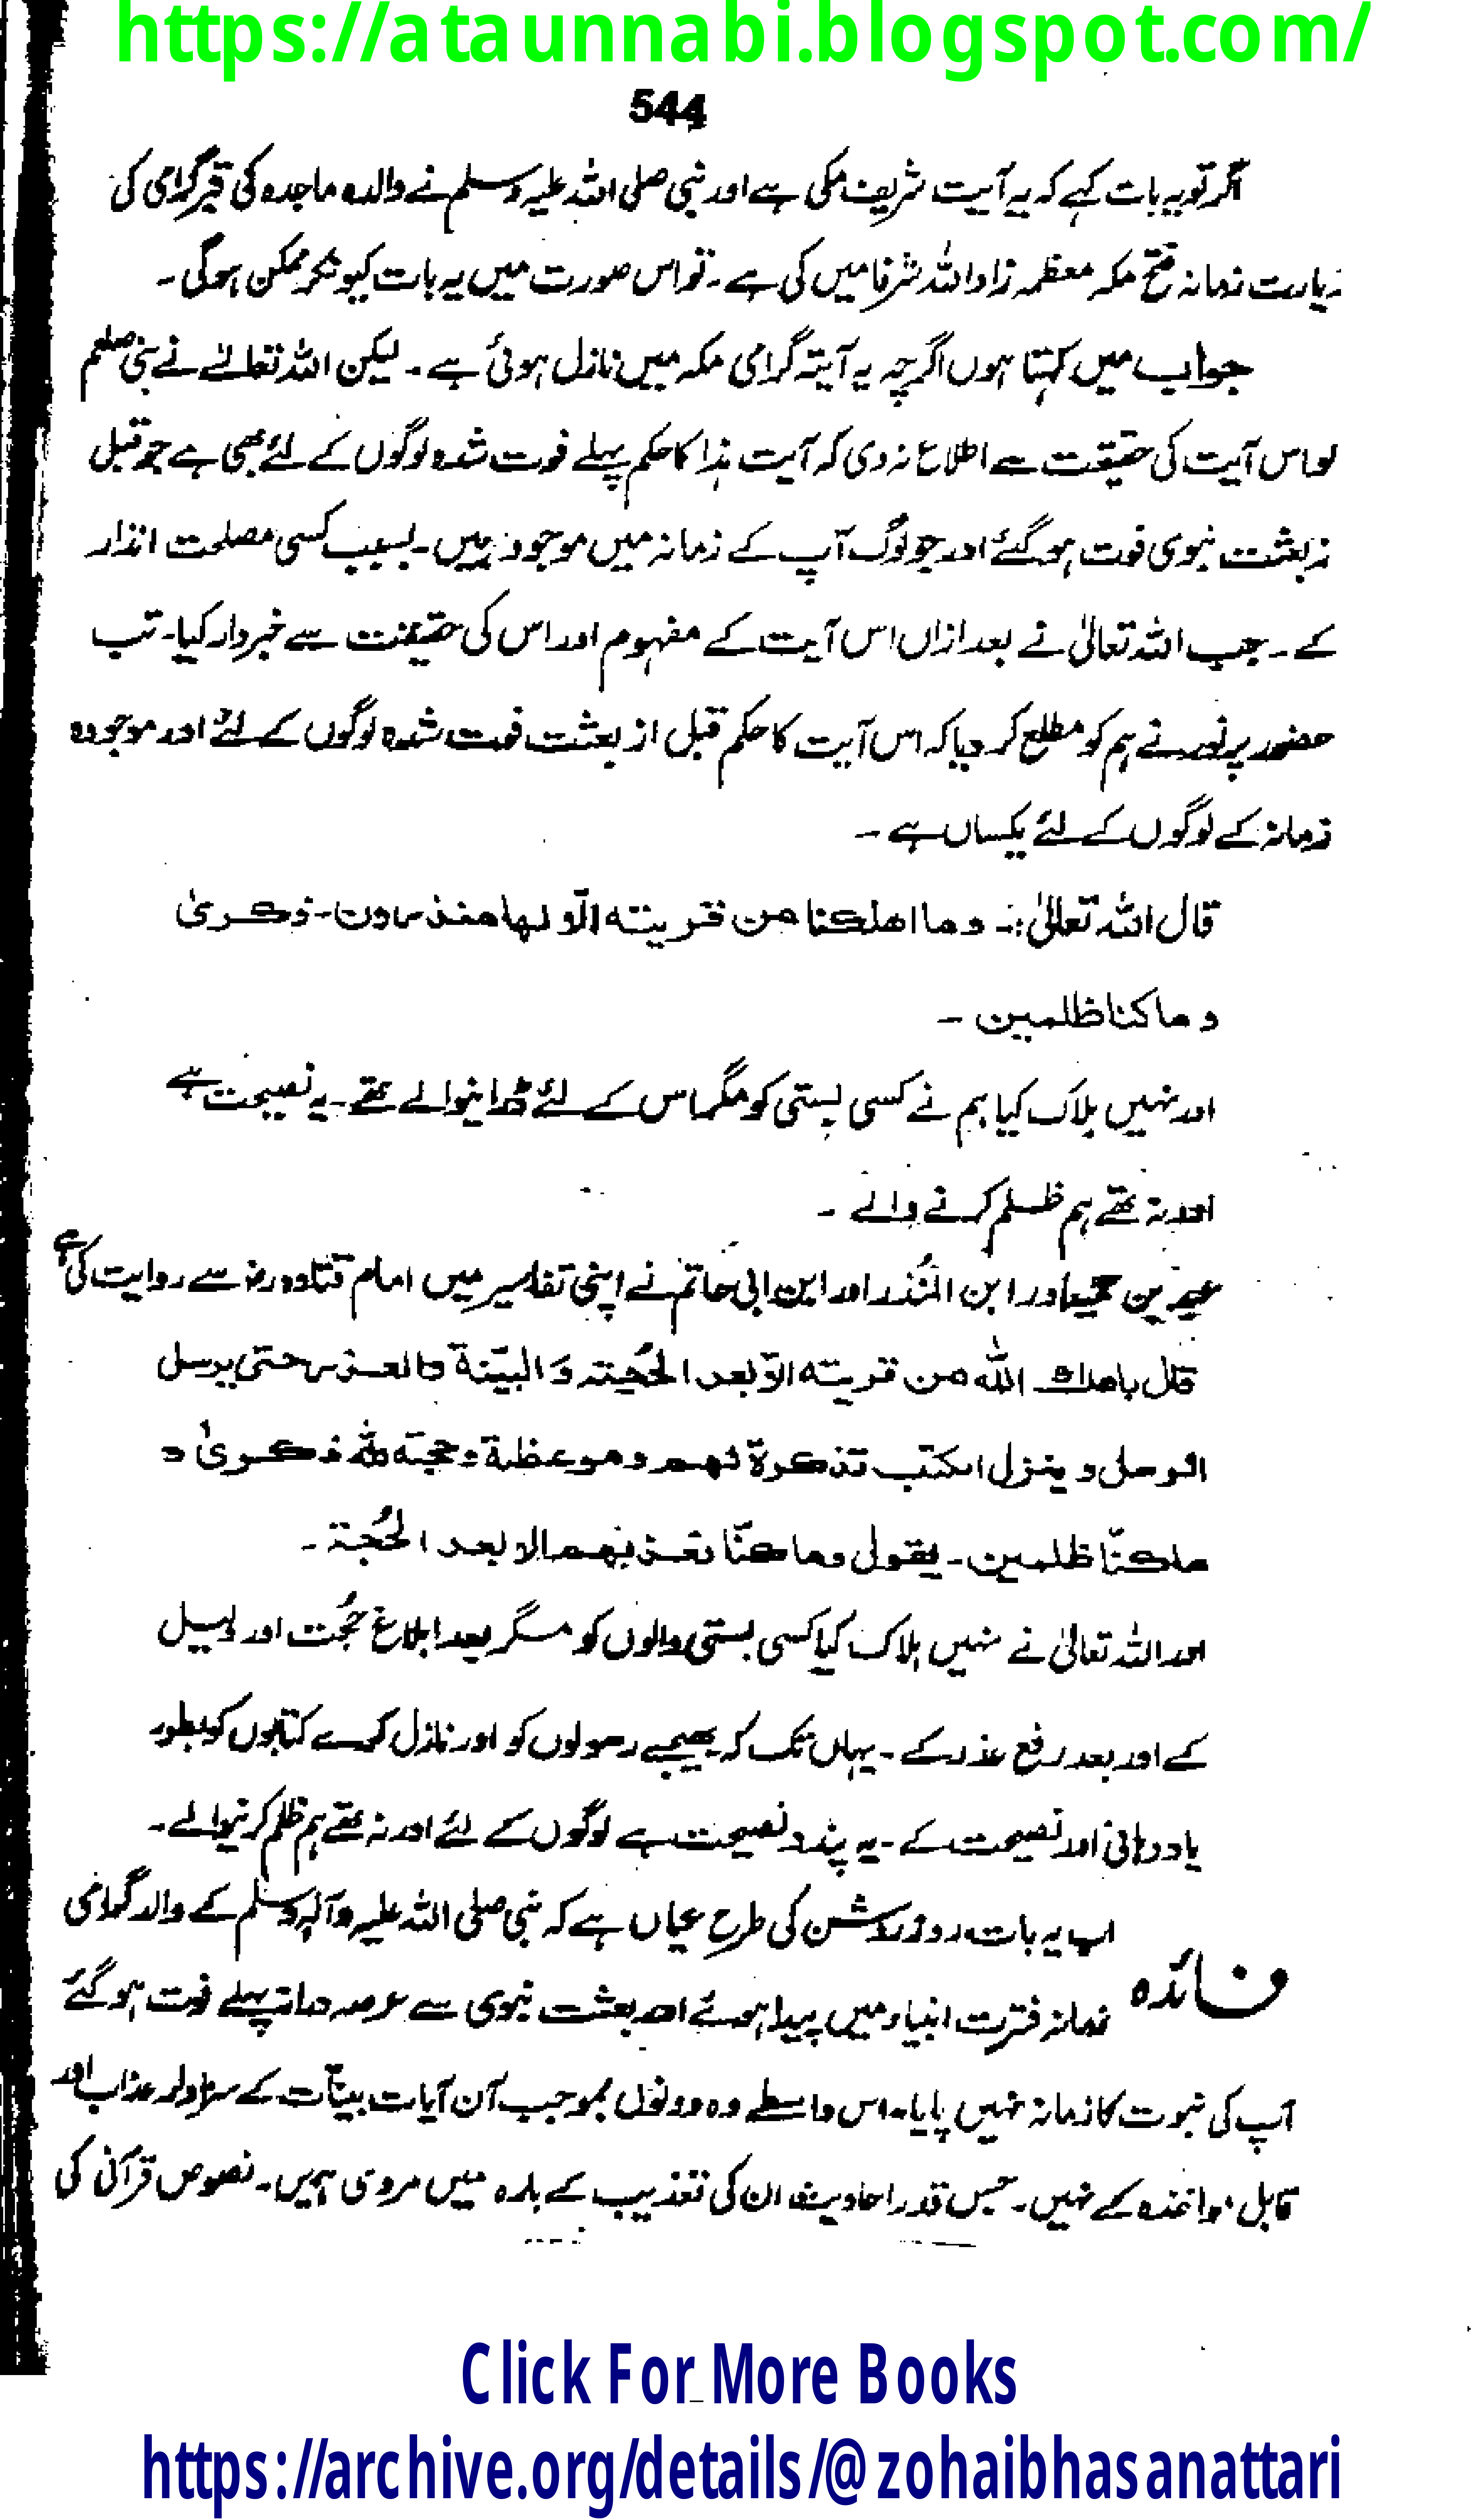 https://ataunnabi.blogspot.com/
544
اگر تو یہ بات کہے کہ یہ آیت شریف مکی ہے اور نبی صلی اللہ علیہ وسلم نے والدہ ماجدہ کی قبر گرامی کی
زیارت زمانہ فتح مکہ معظمہ زاد اللہ شرفا میں کی ہے۔ تو اس صورت میں یہ بات کیونکر ممکن ہوگی۔
جواب میں کہتا ہوں اگرچہ یہ آیتہ گرامی مکہ میں نازل ہوئی ہے۔ لیکن اللہ تعالےٰ نے نبی صلعم
کو اس آیت کی حقیقت سے اطلاع نہ دی کہ آیت ہذا کا حکم پہلے فوت شدہ لوگوں کے لئے بھی ہے جو قبل
از بعثت نبوی فوت ہو گئے اور جو لوگ آپ کے زمانہ میں موجود ہیں۔ بسبب کسی مصلحت انذار
کے۔ جب اللہ تعالیٰ نے بعد ازاں اس آیت کے مفہوم اور اس کی حقیقت سے خبردار کیا۔ تب
حضور پر نور نے ہم کو مطلع کر دیا کہ اس آیت کا حکم قبل از بعثت فوت شدہ لوگوں کے لئے اور موجودہ
زمانہ کے لوگوں کے لئے یکساں ہے۔
قال اللہ تعالیٰ:۔ وما اھلکنا من قریتہ الّا ولہا منذرون۔ ذکریٰ
وما کنا ظلمین۔
اور نہیں ہلاک کیا ہم نے کسی بستی کو مگر اس کے لئے ڈرانیوالے تھے۔ یہ نصیحت ہے
اور نہ تھے ہم ظلم کرنے والے۔
اور ابن المُنذر اور ابن ابی حاتم نے اپنی تفاسیر میں امام قتادہ رض سے روایت کی ہے
قال اللہ من قریتہ الّا بعد الحُجتہ وَالبیّنۃ والعذر حتی یرسل
الرسل و ینزل الکتب تذکرۃ لھم وموعظۃ وحجتہ للہ ذکریٰ و
ماکنّا ظلمین۔ یقول وماکنّا نعذبھم الا بعد الحُجۃ۔
اور اللہ تعالیٰ نے نہیں ہلاک کیا کسی بستی والوں کو مگر بعد ابلاغ حُجت اور دلیل
کے اور بعد رفع عذر کے۔ یہاں تک کہ بھیجے رسولوں کو اور نازل کرے کتابوں کو بطور
یاددہانی اور نصیحت کے۔ یہ پند و نصیحت ہے لوگوں کے لئے اور نہ تھے ہم ظلم کرنیوالے۔
فائدہ اب یہ بات روز روشن کی طرح عیاں ہے کہ نبی صلی اللہ علیہ وآلہ وسلم کے والد گرامی
زمانہ فترت انبیاء میں پیدا ہوئے اور بعثت نبوی سے عرصہ پہلے فوت ہو گئے
آپ کی نبوت کا زمانہ نہیں پایا۔ اس واسطے وہ دونوں بموجب آن آیات بینّات کے سزاوار عذاب اور
قابل مواخذہ کے نہیں۔ جس قدر احادیث ان کی تعذیب کے بارہ میں مروی ہیں۔ نصوص قرآنی کی
Click For More Books
https://archive.org/details/@zohaibhasanattari